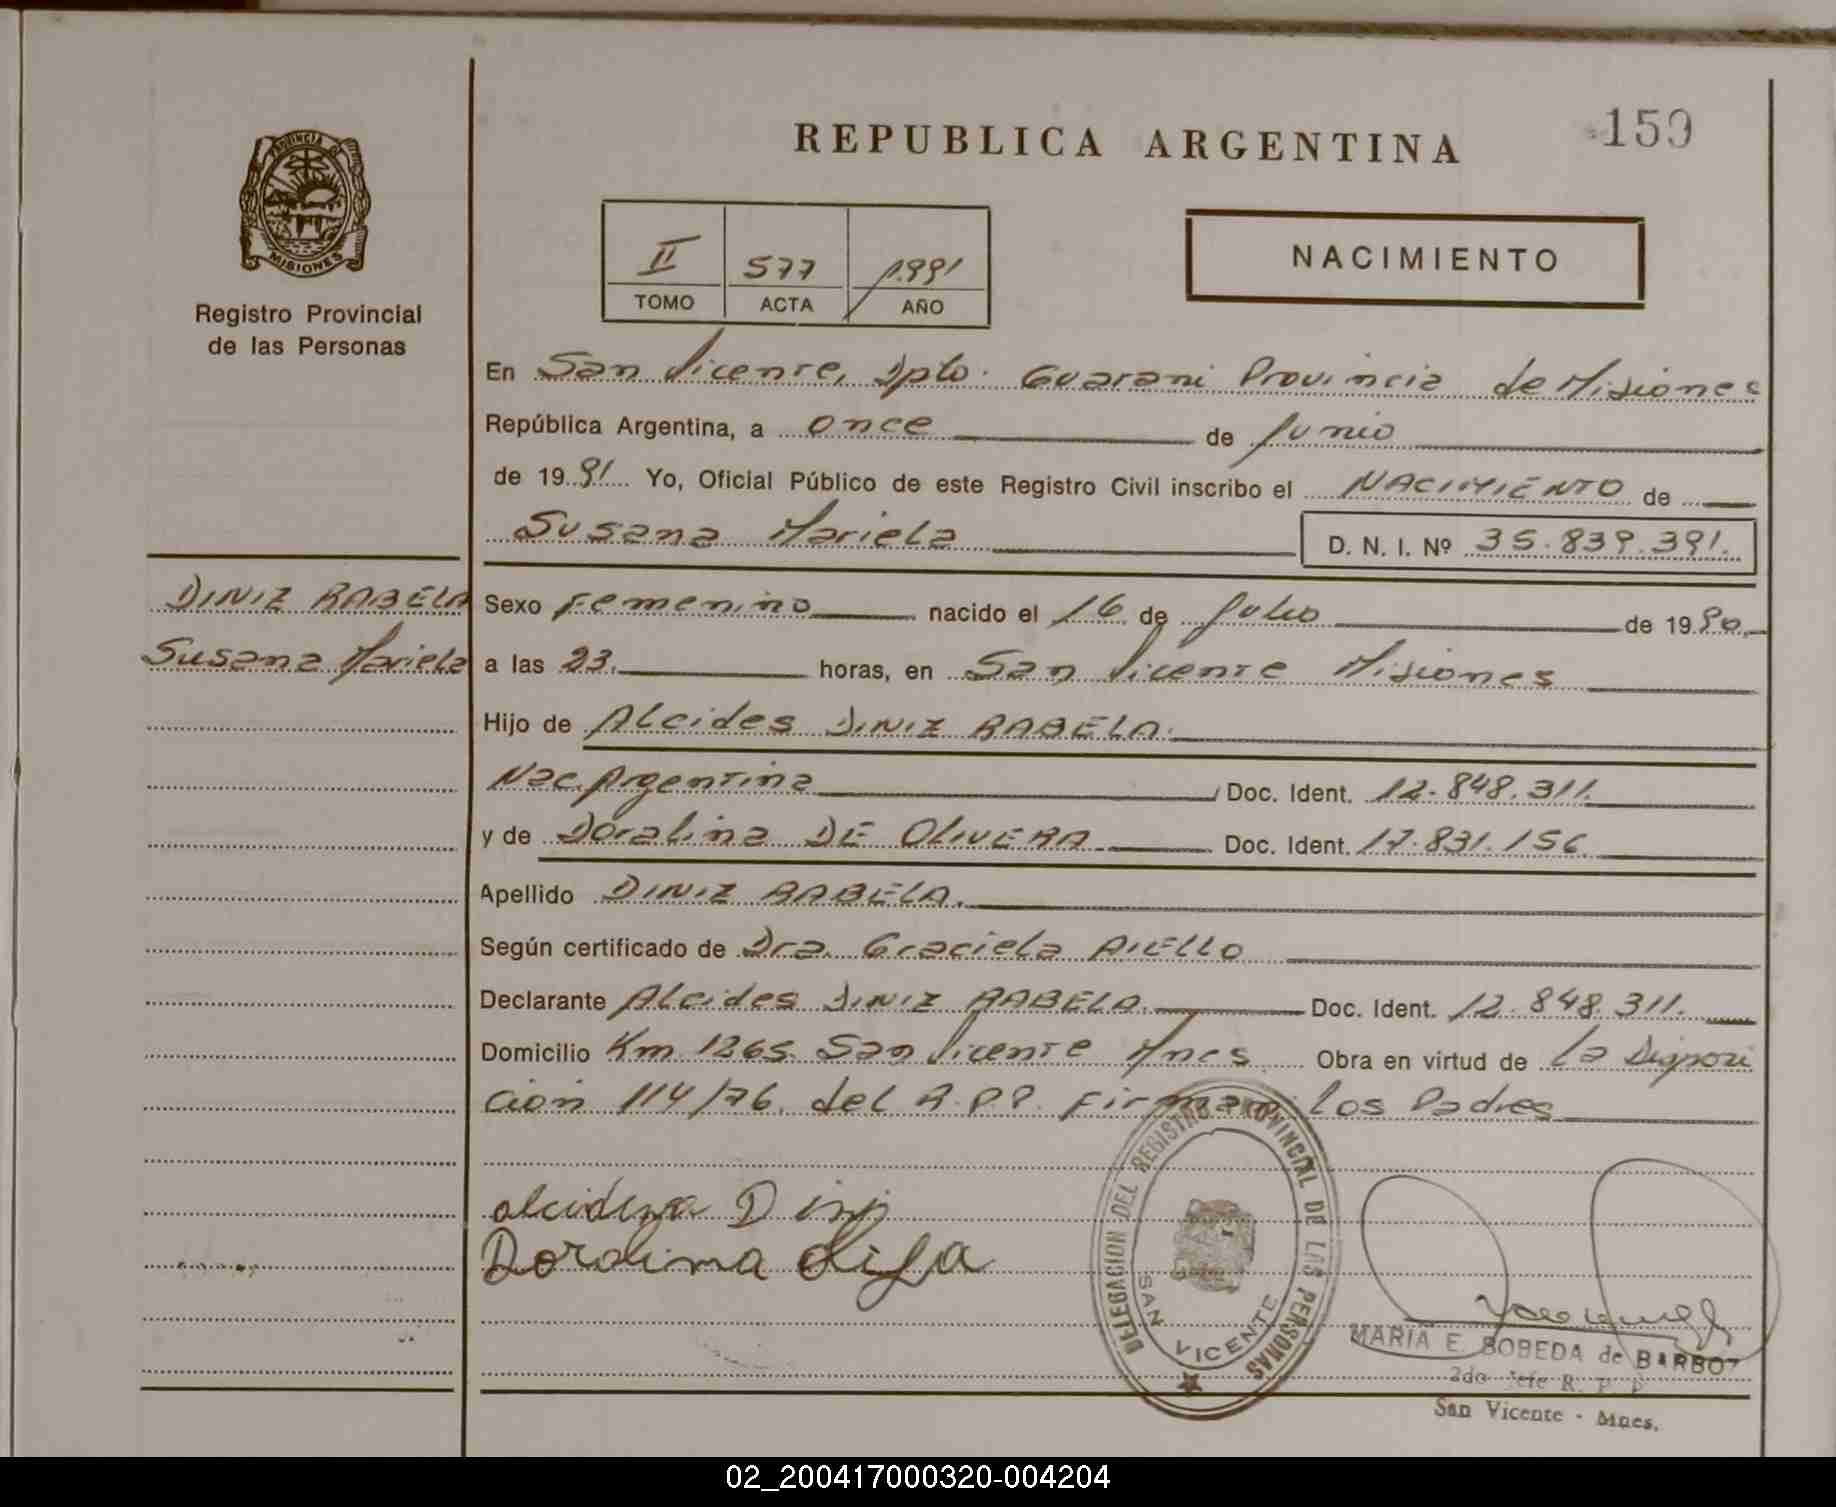 159
REPUBLICA ARGENTINA
PROVINCIA DE
MISIONES
Registro Provincial
de las Personas
II 577 1.991
TOMO ACTA AÑO
NACIMIENTO
En San Vicente, Dpto. Guarani Provincia de Misiones
República Argentina, a once de Junio
de 1991 Yo, Oficial Público de este Registro Civil inscribo el NACIMIENTO de
Susana Mariela D. N. I. Nº 35.839.391.
DINIZ RABELA
Susana Mariela
Sexo Femenino nacido el 16 de Julio de 1990.
a las 23. horas, en San Vicente Misiones
Hijo de Alcides DINIZ RABELA.
Nac. Argentina Doc. Ident. 12.848.311.
y de Doralina DE OLIVERA Doc. Ident. 17.831.156
Apellido DINIZ RABELA.
Según certificado de Dra. Graciela AIELLO
Declarante Alcides DINIZ RABELA. Doc. Ident. 12.848.311.
Domicilio Km 1265. San Vicente Mnes. Obra en virtud de la Disposi
ción 114/76. del R.P.P. Firman los Padres
Dordima
DELEGACION DEL REGISTRO PROVINCIAL DE LAS PERSONAS
SAN VICENTE
MARIA E. BOBEDA de BARBO
2do Jefe R. P. P.
San Vicente - Mnes.
02_200417000320-004204